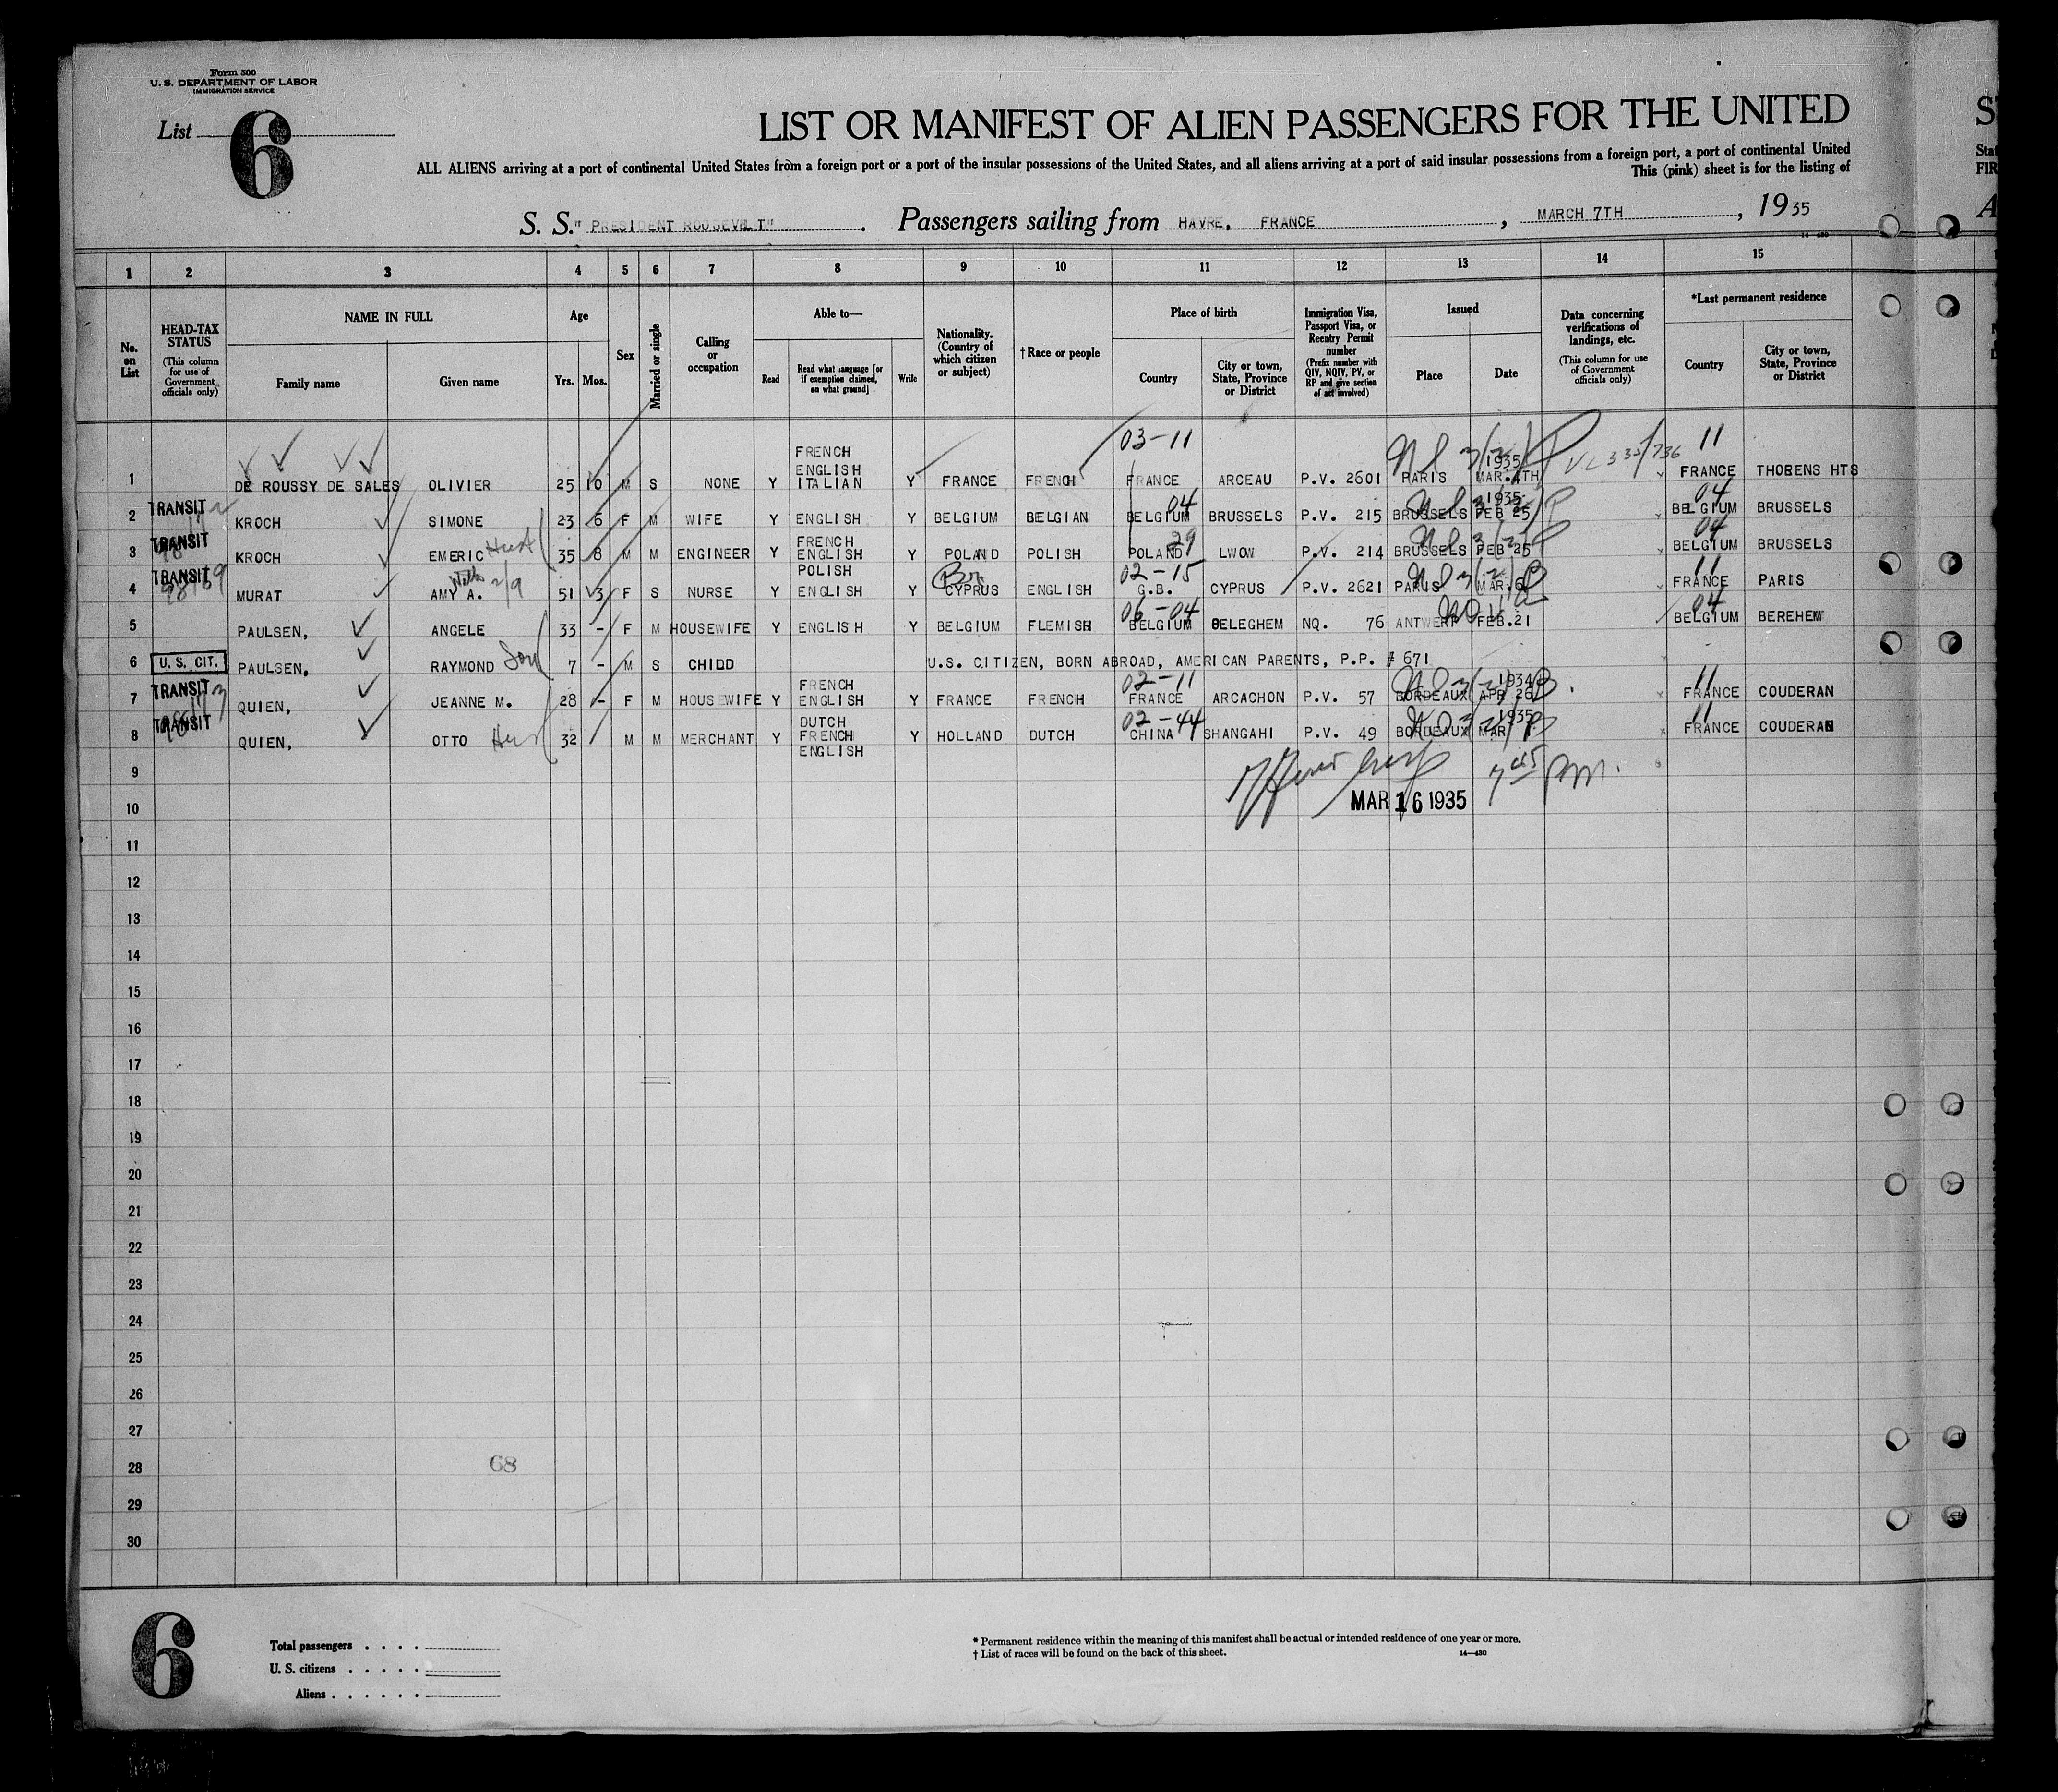 Form 500
U. S. DEPARTMENT OF LABOR
IMMIGRATION SERVICE
List 6
LIST OR MANIFEST OF ALIEN PASSENGERS FOR THE UNITED
ALL ALIENS arriving at a port of continental United States from a foreign port or a port of the insular possessions of the United States, and all aliens arriving at a port of said insular possessions from a foreign port, a port of continental United
This (pink) sheet is for the listing of
S. S. "PRESIDENT ROOSEVELT" . Passengers sailing from HAVRE, FRANCE , MARCH 7TH , 1935
1 2 3 4 5 6 7 8 9 10 11 12 13 14 15
No. on List
HEAD-TAX STATUS (This column for use of Government officials only)
NAME IN FULL Family name Given name
Age Yrs. Mos.
Sex
Married or single
Calling or occupation
Able to— Read Read what language [or if exemption claimed, on what ground] Write
Nationality. (Country of which citizen or subject)
†Race or people
Place of birth Country City or town, State, Province or District
Immigration Visa, Passport Visa, or Reentry Permit number (Prefix number with QIV, NQIV, PV, or RP and give section of act involved)
Issued Place Date
Data concerning verifications of landings, etc. (This column for use of Government officials only)
*Last permanent residence Country City or town, State, Province or District
03-11 11
1 DE ROUSSY DE SALES OLIVIER 25 10 M S NONE Y FRENCH ENGLISH ITALIAN Y FRANCE FRENCH FRANCE ARCEAU P.V. 2601 PARIS 1935 MAR.4TH FRANCE THORENS HTS
04 04
2 TRANSIT KROCH SIMONE 23 6 F M WIFE Y ENGLISH Y BELGIUM BELGIAN BELGIUM BRUSSELS P.V. 215 BRUSSELS 1935 FEB 25 BELGIUM BRUSSELS
29 04
3 TRANSIT KROCH EMERIC Husb 35 8 M M ENGINEER Y FRENCH ENGLISH POLISH Y POLAND POLISH POLAND LWOW P.V. 214 BRUSSELS FEB 25 BELGIUM BRUSSELS
02-15 11
4 TRANSIT MURAT AMY A. 51 3 F S NURSE Y ENGLISH Y Br CYPRUS ENGLISH G.B. CYPRUS P.V. 2621 PARIS MAR.6 FRANCE PARIS
06-04 04
5 PAULSEN, ANGELE 33 - F M HOUSEWIFE Y ENGLISH Y BELGIUM FLEMISH BELGIUM BELEGHEM NQ. 76 ANTWERP FEB.21 BELGIUM BEREHEM
6 U. S. CIT. PAULSEN, RAYMOND Son 7 - M S CHILD U.S. CITIZEN, BORN ABROAD, AMERICAN PARENTS, P.P. # 671
02-11 11
7 TRANSIT QUIEN, JEANNE M. 28 - F M HOUSEWIFE Y FRENCH ENGLISH Y FRANCE FRENCH FRANCE ARCACHON P.V. 57 BORDEAUX 1934 APR 26 FRANCE COUDERAN
02-44 11
8 TRANSIT QUIEN, OTTO 32 M M MERCHANT Y DUTCH FRENCH ENGLISH Y HOLLAND DUTCH CHINA SHANGAHI P.V. 49 BORDEAUX 1935 MAR FRANCE COUDERAN
9
10 MAR 16 1935
11
12
13
14
15
16
17
18
19
20
21
22
23
24
25
26
27
28 68
29
30
6
Total passengers . . . .
U. S. citizens . . . . .
Aliens . . . . . .
* Permanent residence within the meaning of this manifest shall be actual or intended residence of one year or more.
† List of races will be found on the back of this sheet. 14—430